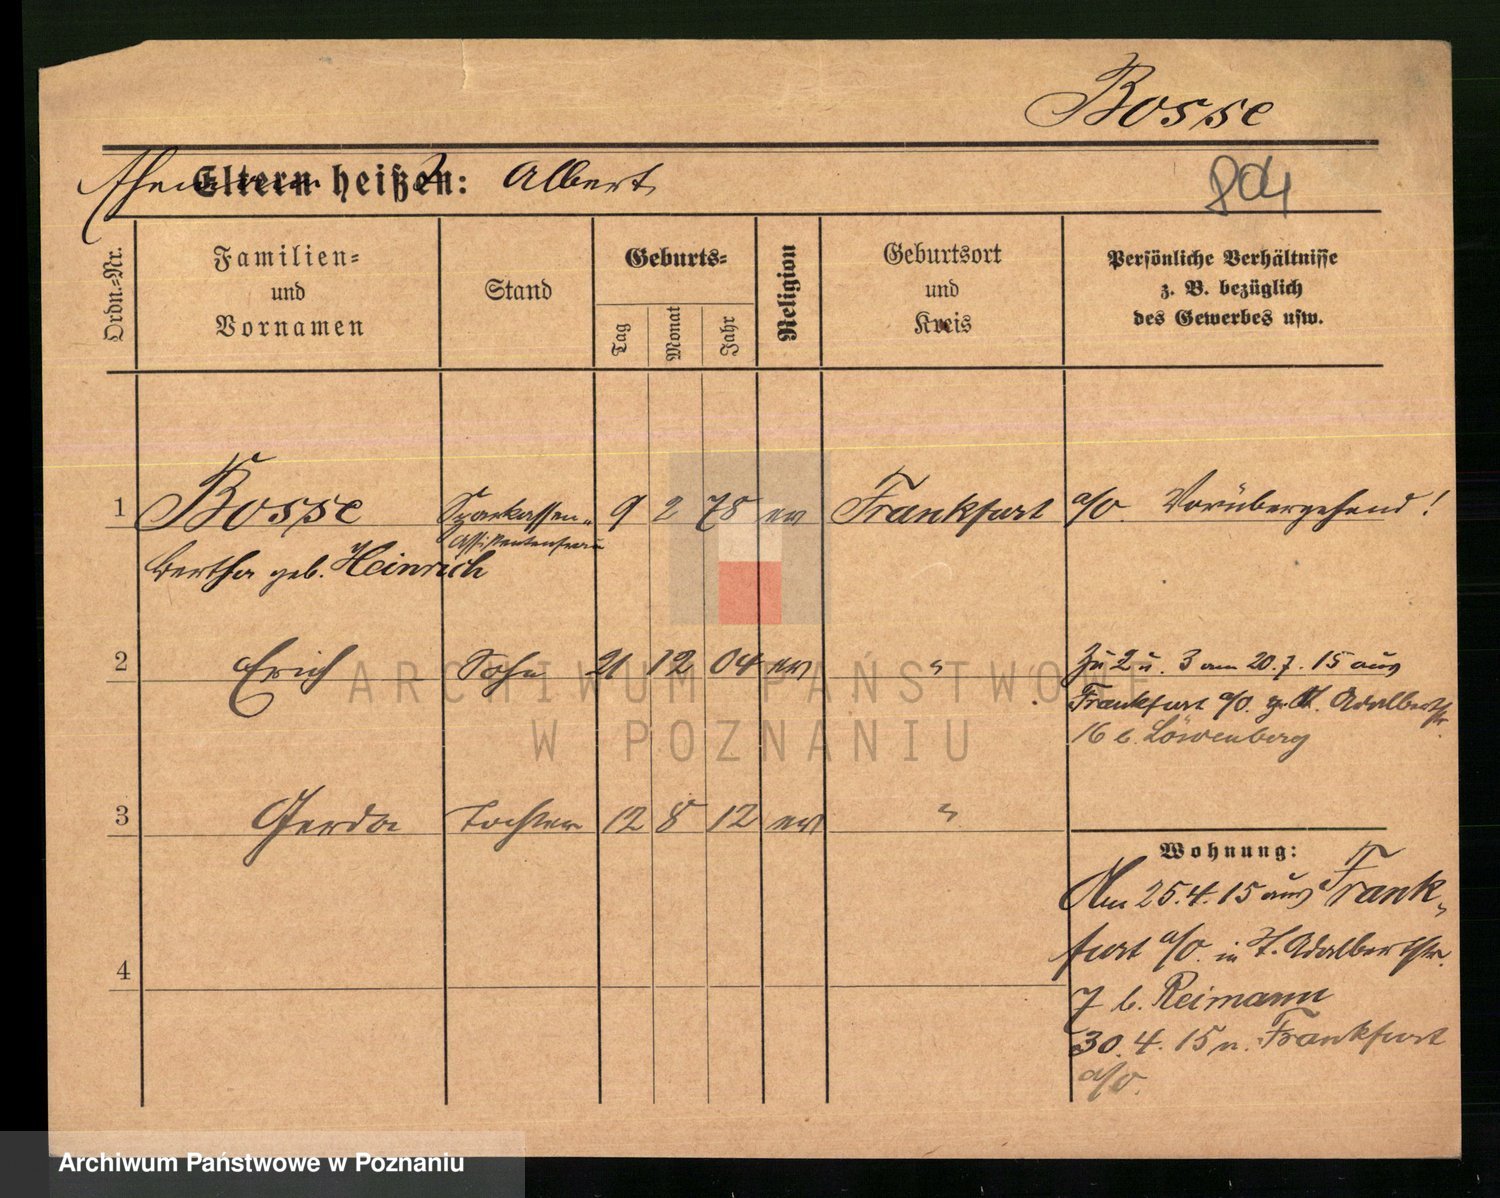 Bosse
Eltern heißen: Albert
804
Ordn.-Nr.
Familien-
und
Vornamen
Stand
Geburts-
Tag
Monat
Jahr
Religion
Geburtsort
und
Kreis
Persönliche Verhältnisse
z. B. bezüglich
des Gewerbes usw.
1 Bosse Sparkassen- 9 2 78 ev Frankfurt a/O. Vorübergehend!
Assistentenfrau
Bertha geb. Heinrich
2 Erich Sohn 21 12 04 ev " Zu 2 u. 3 am 20.7.15 aus
Frankfurt a/O. Adalbertstr.
16 b. Löwenberg
3 Gerda Tochter 12 8 12 ev "
Wohnung:
Am 25.4.15 aus Frank-
furt a/O. in Adalbertstr.
7 b. Reimann
30.4.15 n. Frankfurt
a/O.
4
ARCHIWUM PAŃSTWOWE
W POZNANIU
Archiwum Państwowe w Poznaniu